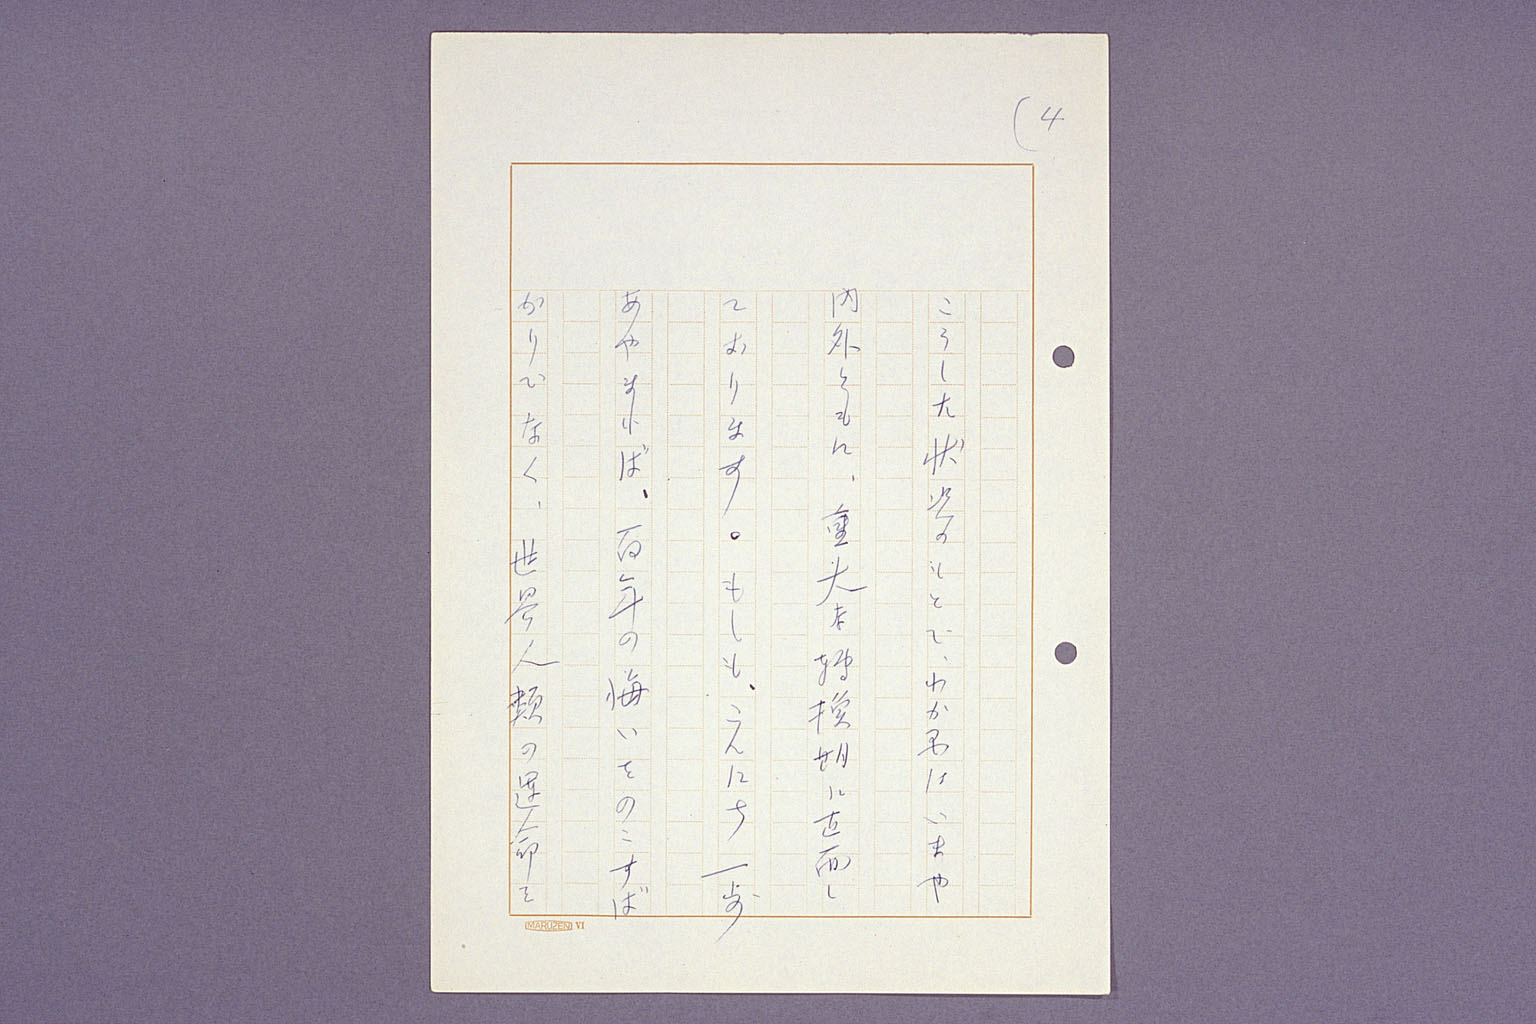 (4
こうした状姿のもとで、わが国はいまや
内外ともに、重大な轉換期に直面し
ております。もしも、こんにち一歩
あやまれば、百年の悔いをのこすば
かりでなく、世界人類の運命を
MARUZEN VI